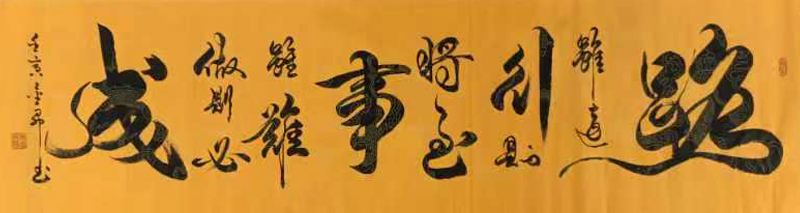 路
雖遠
行則
將至
事
雖難
做則必
成
壬寅